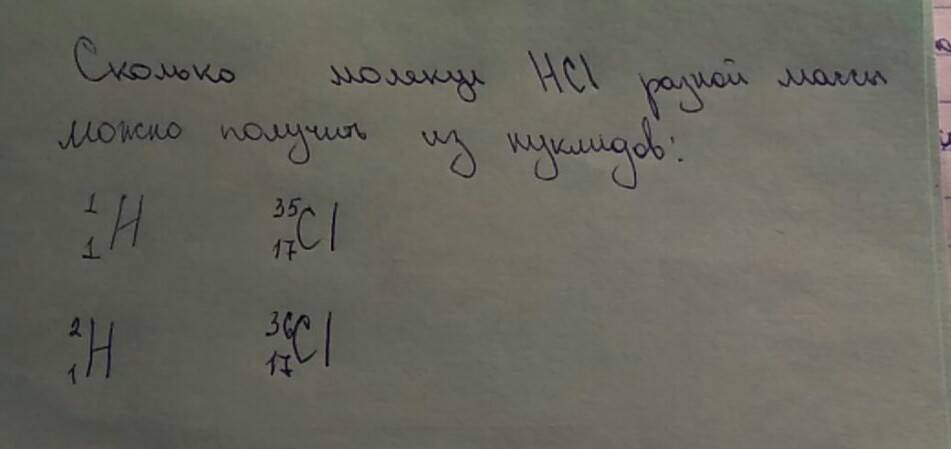 Сколько молекул HCl разной массы
можно получить из нуклидов:
¹₁H ³⁵₁₇Cl
²₁H ³⁶₁₇Cl